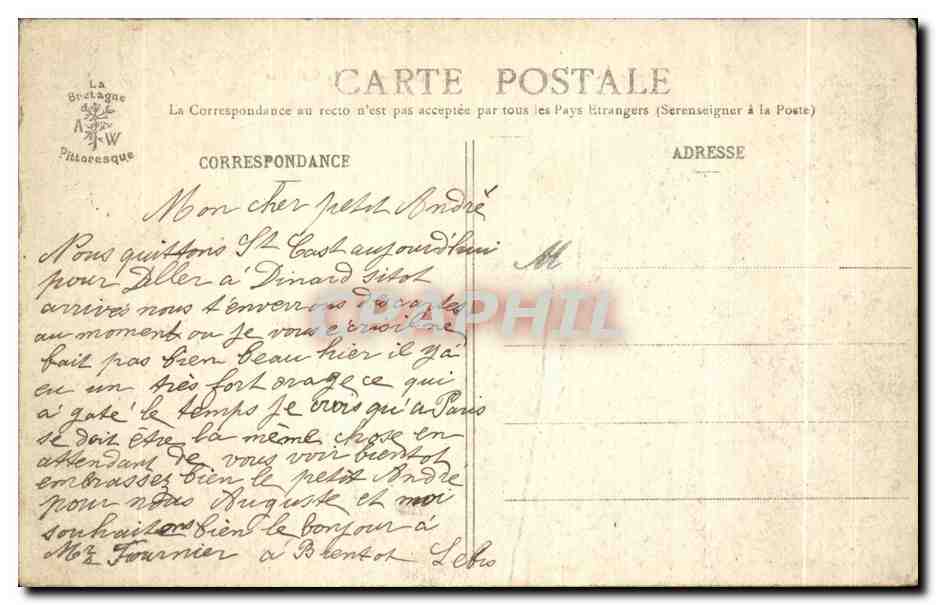 La
Bretagne
A W
Pittoresque
CARTE POSTALE
La Correspondance au recto n'est pas acceptée par tous les Pays Etrangers (Serenseigner à la Poste)
CORRESPONDANCE
ADRESSE
Mon cher petit André
Nous quittons St Cast aujourd'hui
pour aller à Dinard sitot
arrives nous t'enverrons des cartes
au moment ou je vous écris il ne
fait pas bien beau hier il y à
eu un très fort orage ce qui
a gaté le temps je crois qu'a Paris
se doit être la même chose en
attendant de vous voir bientot
embrassez bien le petit André
pour nous Auguste et moi
souhaitons bien le bonjour à
Mr Fournier a Bientot Lebis
M
CPAPHIL